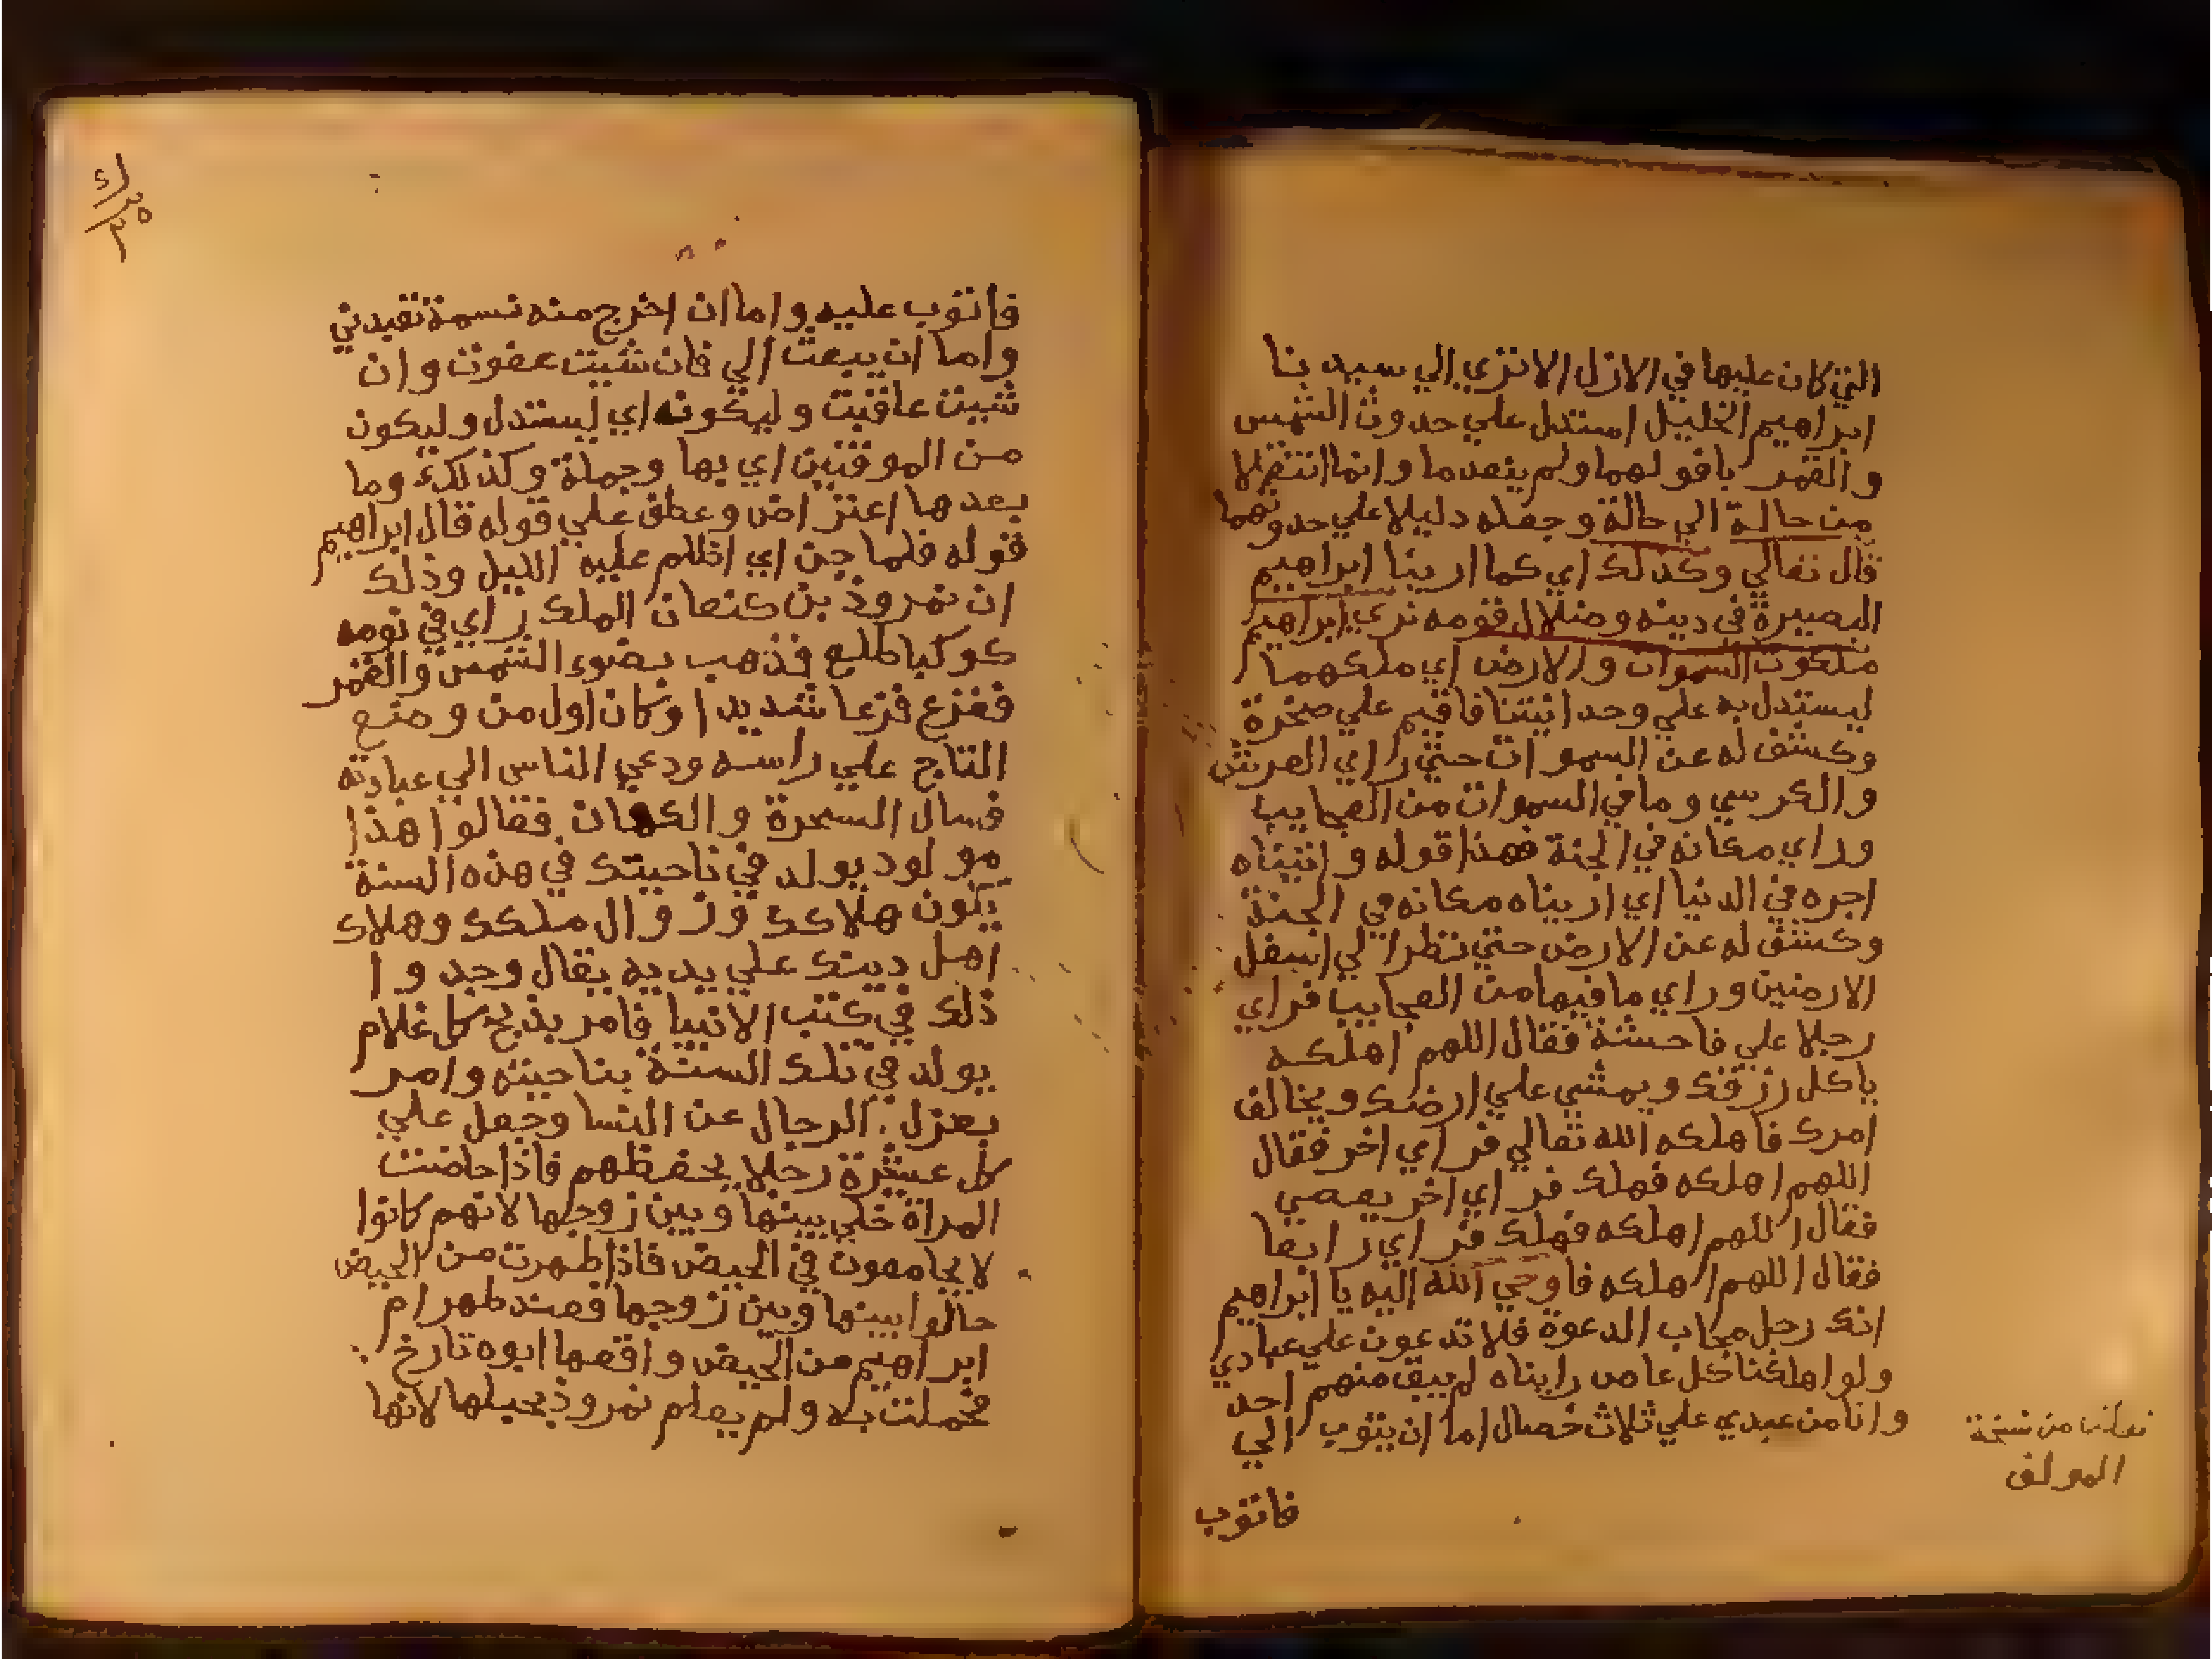 التي كان عليها في الازل الا تري الي سيدنا
ابراهيم الخليل استدل علي حدوث الشمس
والقمر بافولهما ولم ينعدما وانما انتقلا
من حالة الي حالة وجعله دليلا علي حدوثهما
قال تعالي وكذلك اي كما ارينا ابراهيم
البصيرة في دينه وضلال قومه نري ابراهيم
ملكوت السموات والارض اي ملكهما
ليستدل به علي وحدانيتنا فاقيم علي صخرة
وكشف له عن السموات حتي راي العرش
والكرسي وما في السموات من العجايب
وراي مكانه في الجنة فهذا قوله واتيناه
اجره في الدنيا اي اريناه مكانه في الجنة
وكشف له عن الارض حتي نظر الي اسفل
الارضين وراي ما فيها من العجايب فراي
رجلا علي فاحشة فقال اللهم اهلكه
ياكل رزقك ويمشي علي ارضك ويخالف
امرك فاهلكه الله تعالي فراي اخر فقال
اللهم اهلكه فهلك فراي اخر يعصي
فقال اللهم اهلكه فهلك فراي رابعا
فقال اللهم اهلكه فاوحي الله اليه يا ابراهيم
انك رجل مجاب الدعوة فلا تدعون علي عبادي
ولو اهلكنا كل عاص رايناه لم يبق منهم احد
وانا من عبدي علي ثلاث خصال اما ان يتوب الي
من نسخة
المولف
فاتوب
فاتوب عليه واما ان اخرج منه نسمة تعبدني
واما ان يبعث الي فان شيت عفوت وان
شيت عاقبت وليكونه اي ليستدل وليكون
من الموقنين اي بها وجملة وكذلك وما
بعدها اعتراض وعطف علي قوله قال ابراهيم
قوله فلما جن اي اظلم عليه الليل وذلك
ان نمروذ بن كنعان الملك راي في نومه
كوكبا طلع فذهب بضوء الشمس والقمر
ففزع فزعا شديدا وكان اول من وضع
التاج علي راسه ودعي الناس الي عبادته
فسال السحرة والكهان فقالوا هذا
مولود يولد في ناحيتك في هذه السنة
يكون هلاكك وزوال ملكك وهلاك
اهل دينك علي يديه يقال وجدوا
ذلك في كتب الانبيا فامر بذبح كل غلام
يولد في تلك السنة بناحيته وامر
بعزل الرجال عن النسا وجعل علي
كل عشرة رجلا يحفظهم فاذا حاضت
المراة خلي بينها وبين زوجها لانهم كانوا
لا يجامعون في الحيض فاذا طهرت من الحيض
حالوا بينها وبين زوجها فعند طهر ام
ابراهيم من الحيض واقعها ابوه تارخ
فحملت به ولم يعلم نمروذ بحبلها لانها